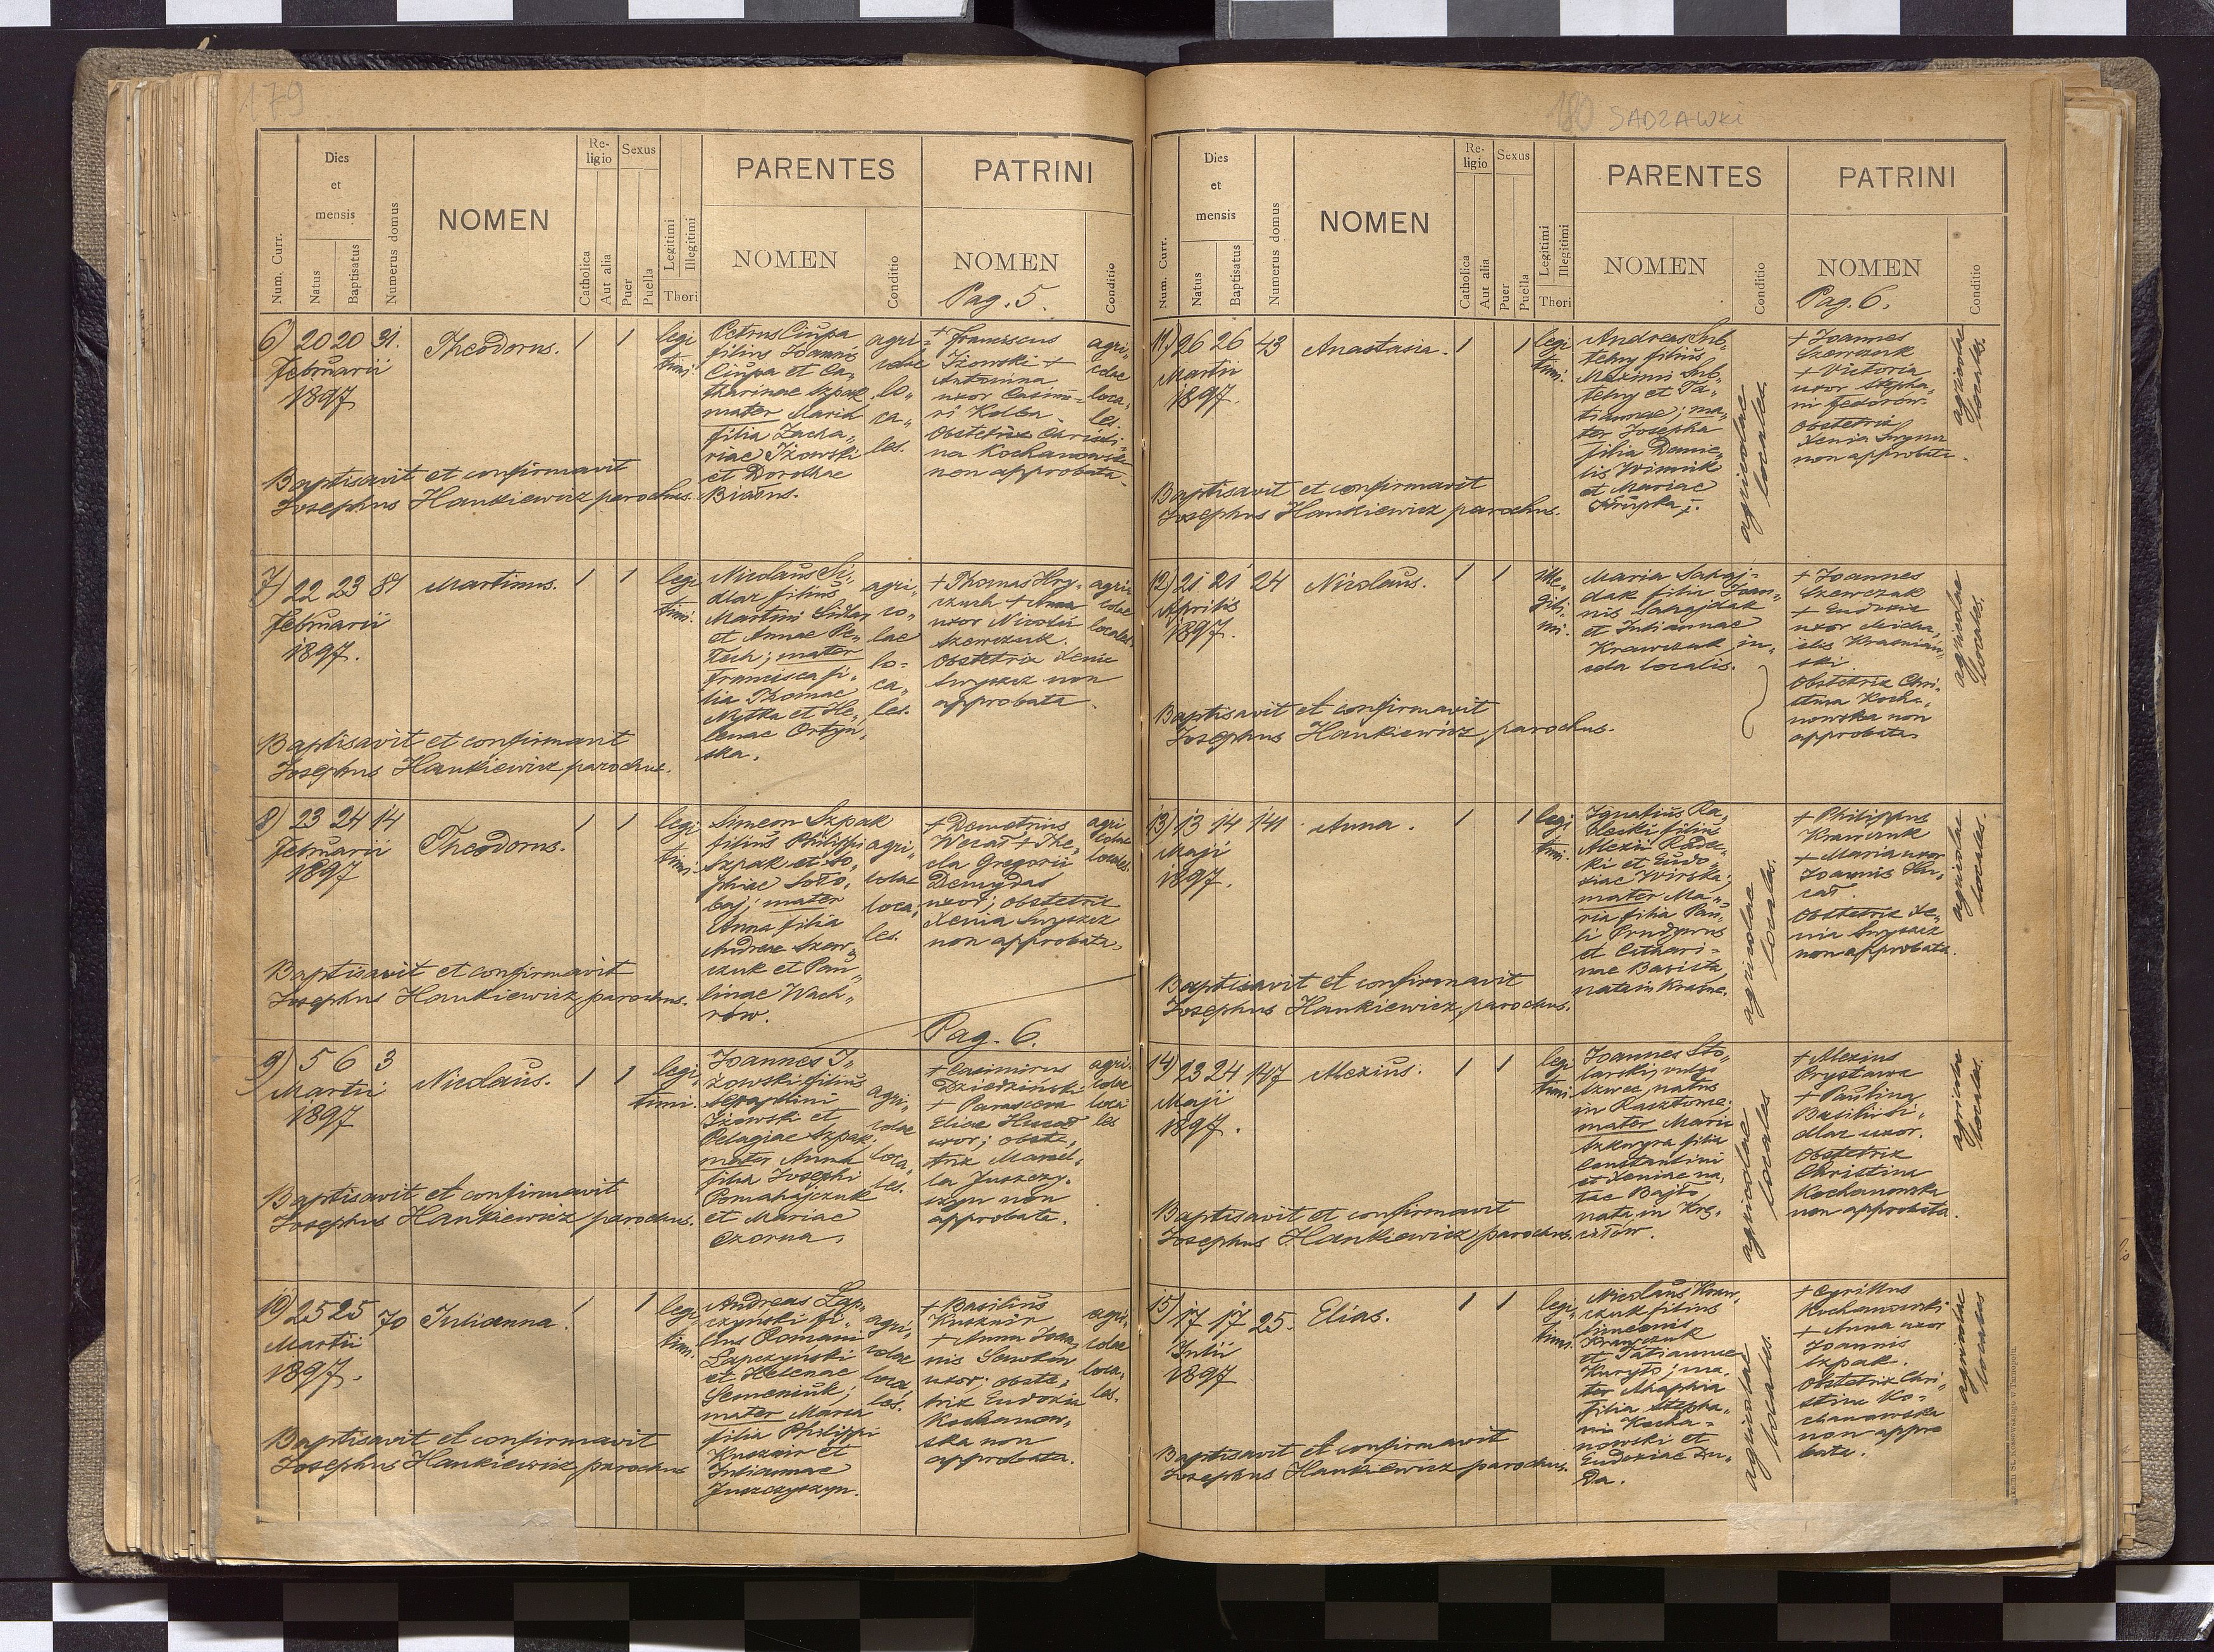 179
Num. Curr.
Dies
et
mensis
Natus
Baptisatus
Numerus domus
NOMEN
Re-
ligio
Catholica
Aut alia
Sexus
Puer
Puella
Legitimi
Illegitimi
Thori
PARENTES
NOMEN
Conditio
PATRINI
NOMEN
Conditio
Pag. 5.
6) 20 20 31.
Februarii
1897
Theodorus.
1 1
legi
timi.
Petrus Ciupa
filius Joannis
Ciupa et Ca-
tharinae Szpak
mater Maria
filia Zacha„
riae Iżowski
et Dorothae
agri-
colae
lo„
ca„
les.
+ Franciscus
Iżowski +
Antonina
uxor Casimi=
ri Kolba.
Obstetrix Christi-
na Kochanowska
non approbata.
agri„
colae
loca„
les.
Baptisavit et confirmavit
Josephus Hankiewicz parochus.
7) 22 23
Februarii
1897.
Martinus.
1 1
legi
timi.
Nicolaus Si-
dlar filius
Martini Sidlar
et Annae
mater
Francisca fi-
lia Thomae
Mytka et He„
lenae Ortyn„
ska.
agri-
co-
lae
lo-
ca„
les.
+ Thomas Hry-
+ Anna
uxor Nicolai
Szewczuk.
Obstetrix Xenia
non
approbata.
agri„
colae
locales.
Baptisavit et confirmavit
Josephus Hankiewicz parochus.
8) 23 24 14
Februarii
1897
Theodorus.
1 1
legi
timi.
Simeon Szpak
filius Philippi
Szpak et So„
phiae Soło„
baj; mater
Anna filia
Andreae Szew„
czuk et Pau„
linae Wach„
rów.
agri„
colae
loca„
les.
+ Demetrius
+ The„
cla Gregorii
Demydas
uxor; obstetrix
Xenia
non approbata.
agri
colae
locales.
Baptisavit et confirmavit
Josephus Hankiewicz parochus.
Pag. 6.
9) 5 6 3
Martii
1897
Nicolaus.
1 1
legi„
timi.
Joannes I„
żowski filius
Seraphini
Iżowski et
Pelagiae Szpak;
mater Anna
filia Josephi
Pomahajczuk
et Mariae
Czorna.
agri„
colae
loca„
les.
+ Casimirus
Dziedziński
+ Parasceva
Eliae Husar
uxor; obste„
trix Marcel„
la Juszczy„
szyn non
approbata.
agri-
colae
loca
les
Baptisavit et confirmavit
Josephus Hankiewicz parochus.
10) 25 25 70
Martii
1897.
Julianna.
1 1
legi„
timi.
Andreas Łap„
czyński fi„
lius Romani
Łapczyński
et Helenae
Semeniuk;
mater Maria
filia Philippi
Kusznir et
Juliannae
Juszczyszyn.
agri„
colae
loca„
les.
+ Basilius
Kusznir
+ Anna Joan„
nis
uxor; obste„
trix Eudoxia
Kochanow„
ska non
approbata.
agri„
colae
loca„
les.
Baptisavit et confirmavit
Josephus Hankiewicz parochus
180 SADZAWKI
Num. Curr.
Dies
et
mensis
Natus
Baptisatus
Numerus domus
NOMEN
Re-
ligio
Catholica
Aut alia
Sexus
Puer
Puella
Legitimi
Illegitimi
Thori
PARENTES
NOMEN
Conditio
PATRINI
NOMEN
Conditio
Pag. 6.
11) 26 26 43
Martii
1897.
Anastasia.
1 1
legi
timi.
Andreas Sub-
telny filius
Maximi Sub„
telny et Ta„
tiannae; ma„
ter Josepha
filia Danie„
lis Winnik
et Mariae
agricolae
locales.
+ Joannes
Szewczuk
+ Victoria
uxor Stepha„
ni Fedorów.
Obstetrix
Xenia
non approbata.
agricolae
locales.
Baptisavit et confirmavit
Josephus Hankiewicz parochus.
12) 21 21 24
Aprilis
1897.
Nicolaus.
1 1
ille-
giti„
mi.
Maria Sahaj-
dak filia Joan„
nis Sahajdak
et Juliannae
Krawczuk in„
cola localis.
+ Joannes
Szewczuk
+ Eudoxia
uxor Micha„
elis Krasnian„
ski.
Obstetrix Chri-
stina Kocha„
nowska non
approbata
agricolae
locales.
Baptisavit et confirmavit
Josephus Hankiewicz, parochus.
13) 13 14 141
Maji
1897.
Anna.
1 1
legi
timi.
Ignatius Ra„
decki filius
Alexii Radec„
ki et Eudo„
xiae Wirska;
mater Ma„
ria filia Pau„
li
et Cathari-
nae
nata in Krasne.
agricolae
locales.
+ Philippus
Krawczuk
+ Maria uxor
Joannis Hu„
sar.
Obstetrix Xe„
nia
non approbata.
agricolae
locales.
Baptisavit et confirmavit
Josephus Hankiewicz, parochus.
14) 23 24 147
Maji
1897.
Alexius.
1 1
legi
timi.
Joannes Sto„
larski, vulgo
Szwec, natus
in
mater Maria
filia
Constantini
et Xeniae na„
tae Bajło
nata in
agricolae
locales
+ Alexius
Prystawa
+ Paulina
Basilii Si„
dlar uxor.
Obstetrix
Christina
Kochanowska
non approbata.
agricolae
locales.
Baptisavit et confirmavit
Josephus Hankiewicz parochus.
15) 17 17 25.
Julii
1897
Elias.
1 1
legi„
timi.
Nicolaus Kraw„
czuk filius
Simeonis
Krawczuk
et Tatiannae
Kuryło; ma„
ter Maphia
filia Stepha„
ni Kocha„
nowski et
Eudoxiae Du„
da.
agricolae
locales.
+ Cyrillus
Kochanowski
+ Anna uxor
Joannis
Szpak.
Obstetrix Chri„
stina Ko„
chanowska
non appro
bata.
agricolae
locales
Baptisavit et confirmavit
Josephus Hankiewicz parochus.